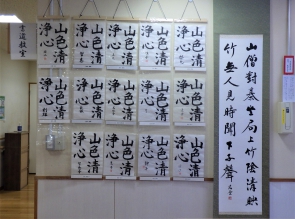 書道教室
山色清
浄心
山色清
浄心
山色清
浄心
山色清
浄心
山色清
浄心
山色清
浄心
山色清
浄心
山色清
浄心
山色清
浄心
山色清
浄心
山色清
浄心
山色清
浄心
山色清
浄心
山色清
浄心
山僧對棊坐局上竹陰清映
竹無人見時聞下子聲